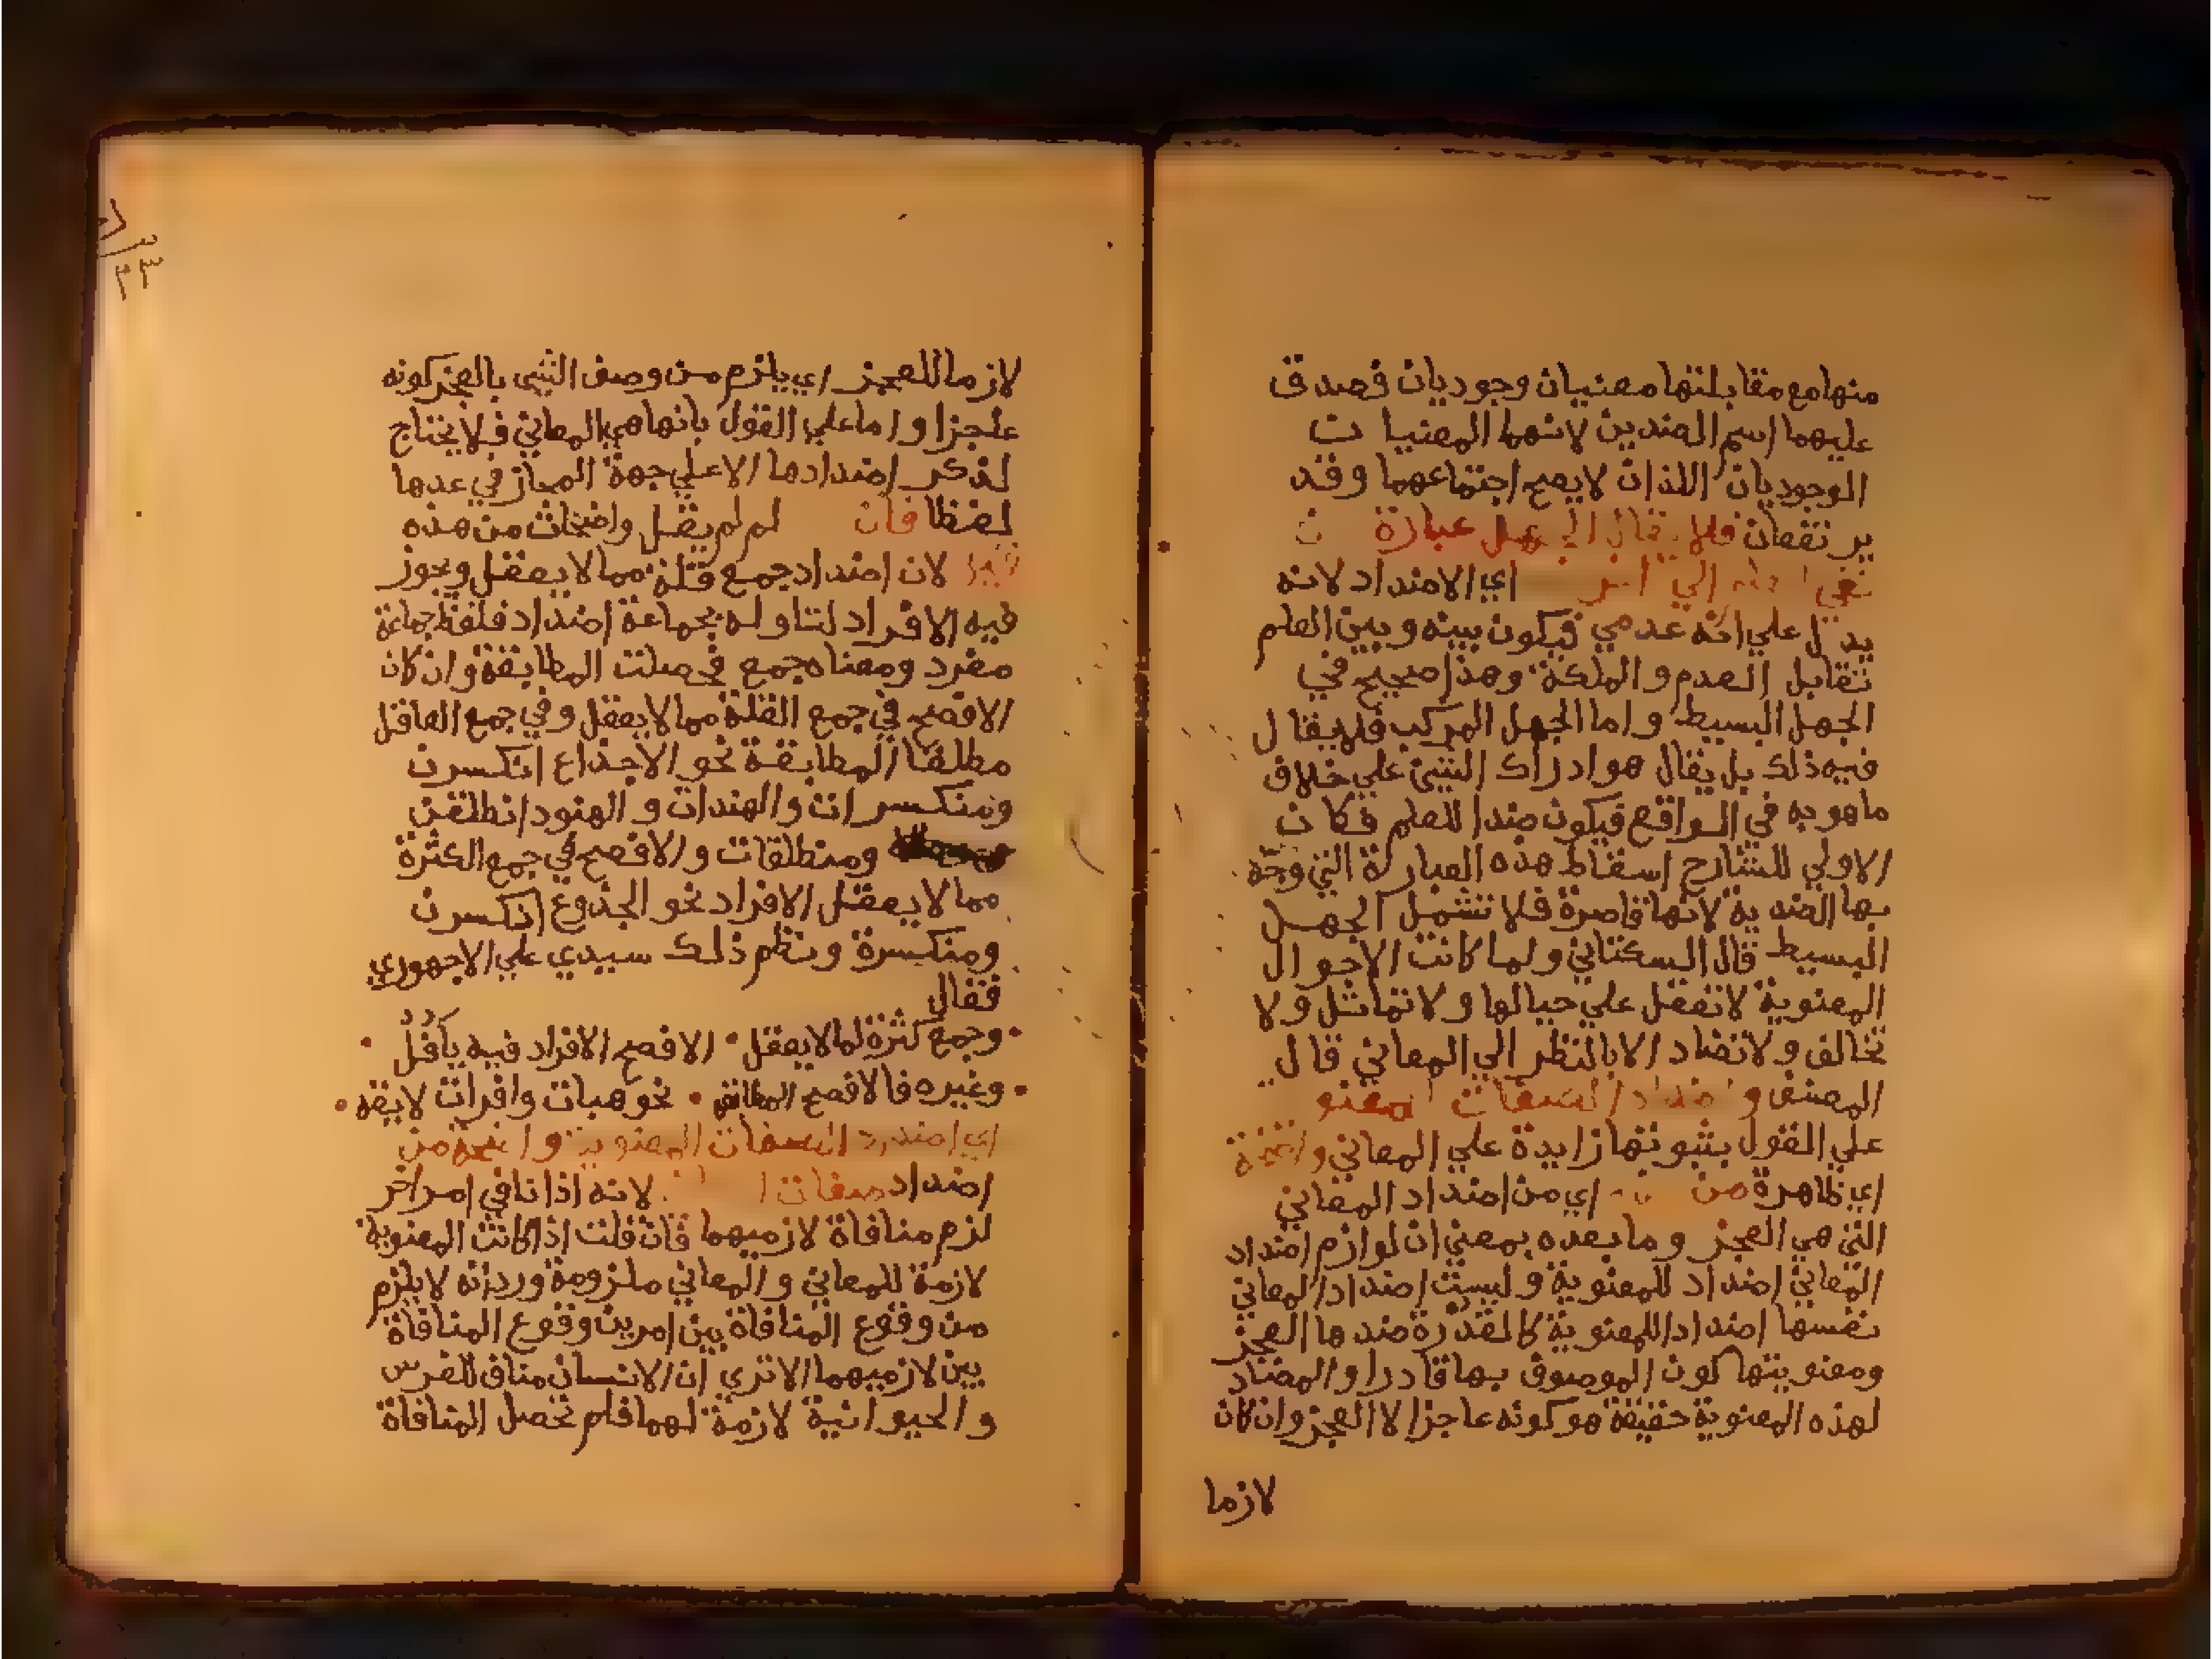 منها مع مقابلتها معنيان وجوديان فصدق
عليهما اسم الضدين لانهما المعنيا ن
الوجوديان اللذان لايصح اجتماعهما وقد
يرتفعان فلا يقال الجهل عبارة
نفي الي اخر اي الاضداد لانه
يدل علي انه عدمي فيكون بينه وبين العلم
تقابل العدم والملكة وهذا صحيح في
الجهل البسيط واما الجهل المركب فلا يقال
فيه ذلك بل يقال هو ادراك الشي علي خلاف
ما هو به في الواقع فيكون ضدا للعلم فكان
الاولي للشارح اسقاط هذه العبارة التي وجه
بها الضدية لانها قاصرة فلا تشمل الجهل
البسيط قال السكتاني ولما كانت الاحوال
المعنوية لا تعقل علي حيالها ولا تماثل ولا
تخالف ولا تضاد الا بالنظر الي المعاني قال
المصنف و اضداد الصفات المعنو
علي القول بثبوتها زايدة علي المعاني واضحة
اي ظاهرة من اي من اضداد المعاني
التي هي العجز وما بعده بمعني ان لوازم اضداد
المعاني اضداد للمعنوية وليست اضداد المعاني
نفسها اضدادا للمعنوية كالقدرة ضدها العجز
ومعنويتها كون الموصوف بها قادرا والمضاد
لهذه المعنوية حقيقة هو كونه عاجزا لا العجز وان كان
لازما
لازما للعجز اي يلزم من وصف الشي بالعجز كونه
عاجزا واما علي القول بانها هي المعاني فلا يحتاج
لذكر اضدادها الا علي جهة المجاز في عدها
لفظا فان لم لم يقل واضحات من هذه
لان اضداد جمع قلة مما لا يعقل ويجوز
فيه الافراد لتاوله بجماعة اضداد فلفظ جماعة
مفرد ومعناه جمع فحصلت المطابقة وان كان
الافصح في جمع القلة مما لا يعقل وفي جمع العاقل
مطلقا المطابقة نحو الاجذاع انكسرن
ومنكسرات والهندات والهنود انطلقن
ومنطلقات والافصح في جمع الكثرة
مما لا يعقل الافراد نحو الجذوع انكسرت
ومنكسرة ونظم ذلك سيدي علي الاجهوري
فقال
وجمع كثرة لما لا يعقل • الافصح الافراد فيه يا فل
وغيره فالافصح المطابقه • نحو هبات وافرات لايقه
اي اضداد الصفات المعنوية واضحة من
اضداد صفات ا لانه اذا نافي امر اخر
لزم منافاة لازميهما فان قلت اذا كانت المعنوية
لازمة للمعاني والمعاني ملزومة ورد انه لا يلزم
من وقوع المنافاة بين امرين وقوع المنافاة
بين لازميهما الا تري ان الانسان مناف للفرس
والحيوانية لازمة لهما فلم تحصل المنافاة